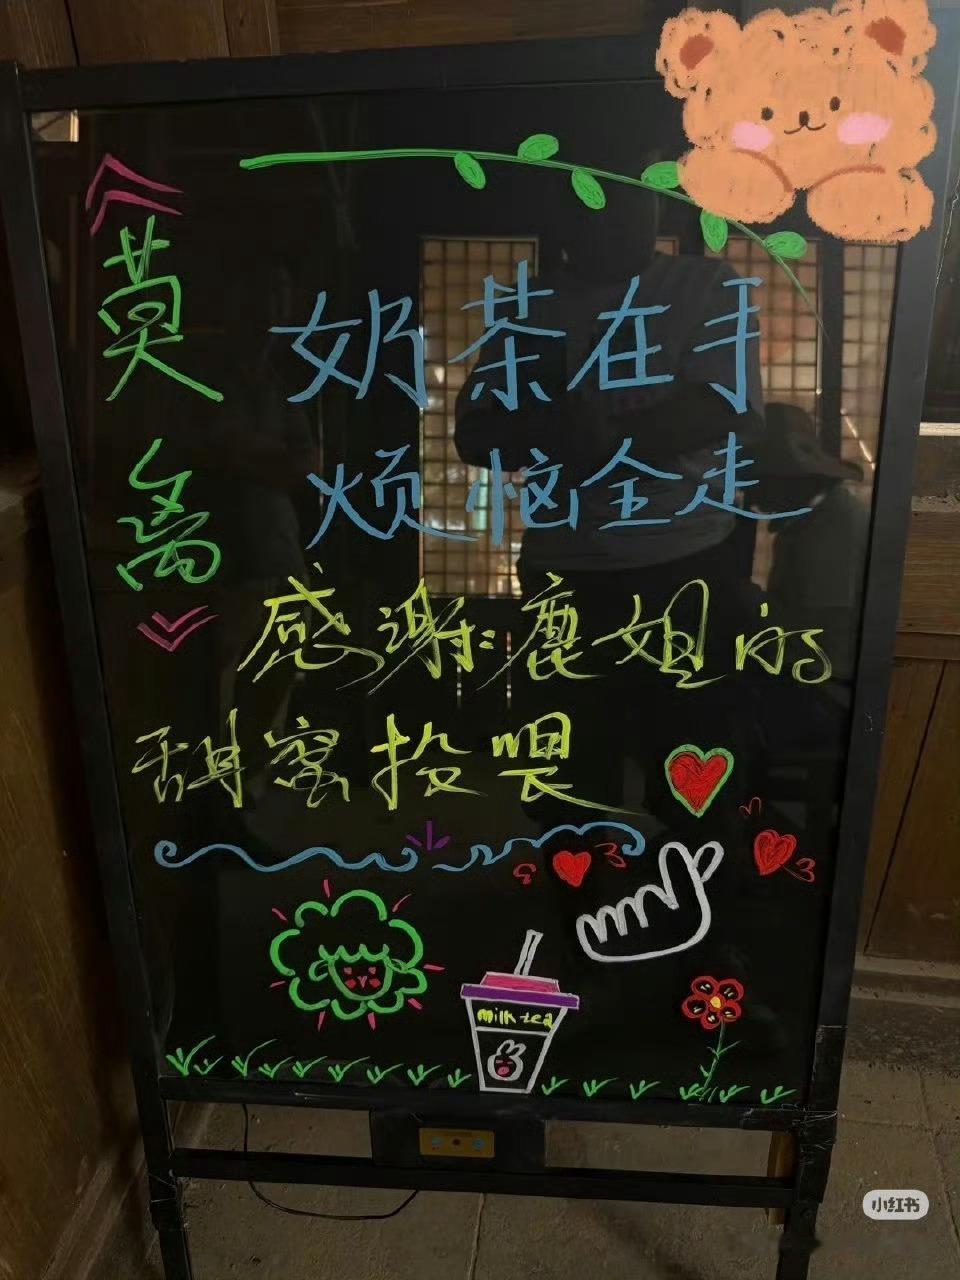 《莫离》
奶茶在手
烦恼全走
感谢:鹿姐的
甜蜜投喂
milk tea
小红书